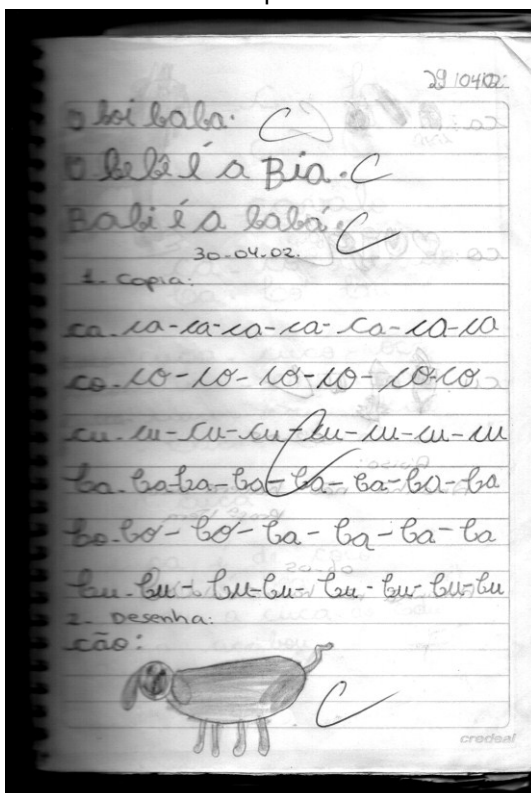 29/04/02.
O boi baba.
O bebê é a Bia.
Babi é a babá.
30-04-02.
1- Copia:
ca-ca-ca-ca-ca-ca-ca-ca
co-co-co-co-co-co-co
cu-cu-cu-cu-cu-cu-cu-cu
ba-ba-ba-ba-ba-ba-ba-ba
bo-bo-bo-ba-ba-ba-ba
bu-bu-bu-bu-bu-bu-bu-bu
2- Desenha:
cão:
credeal